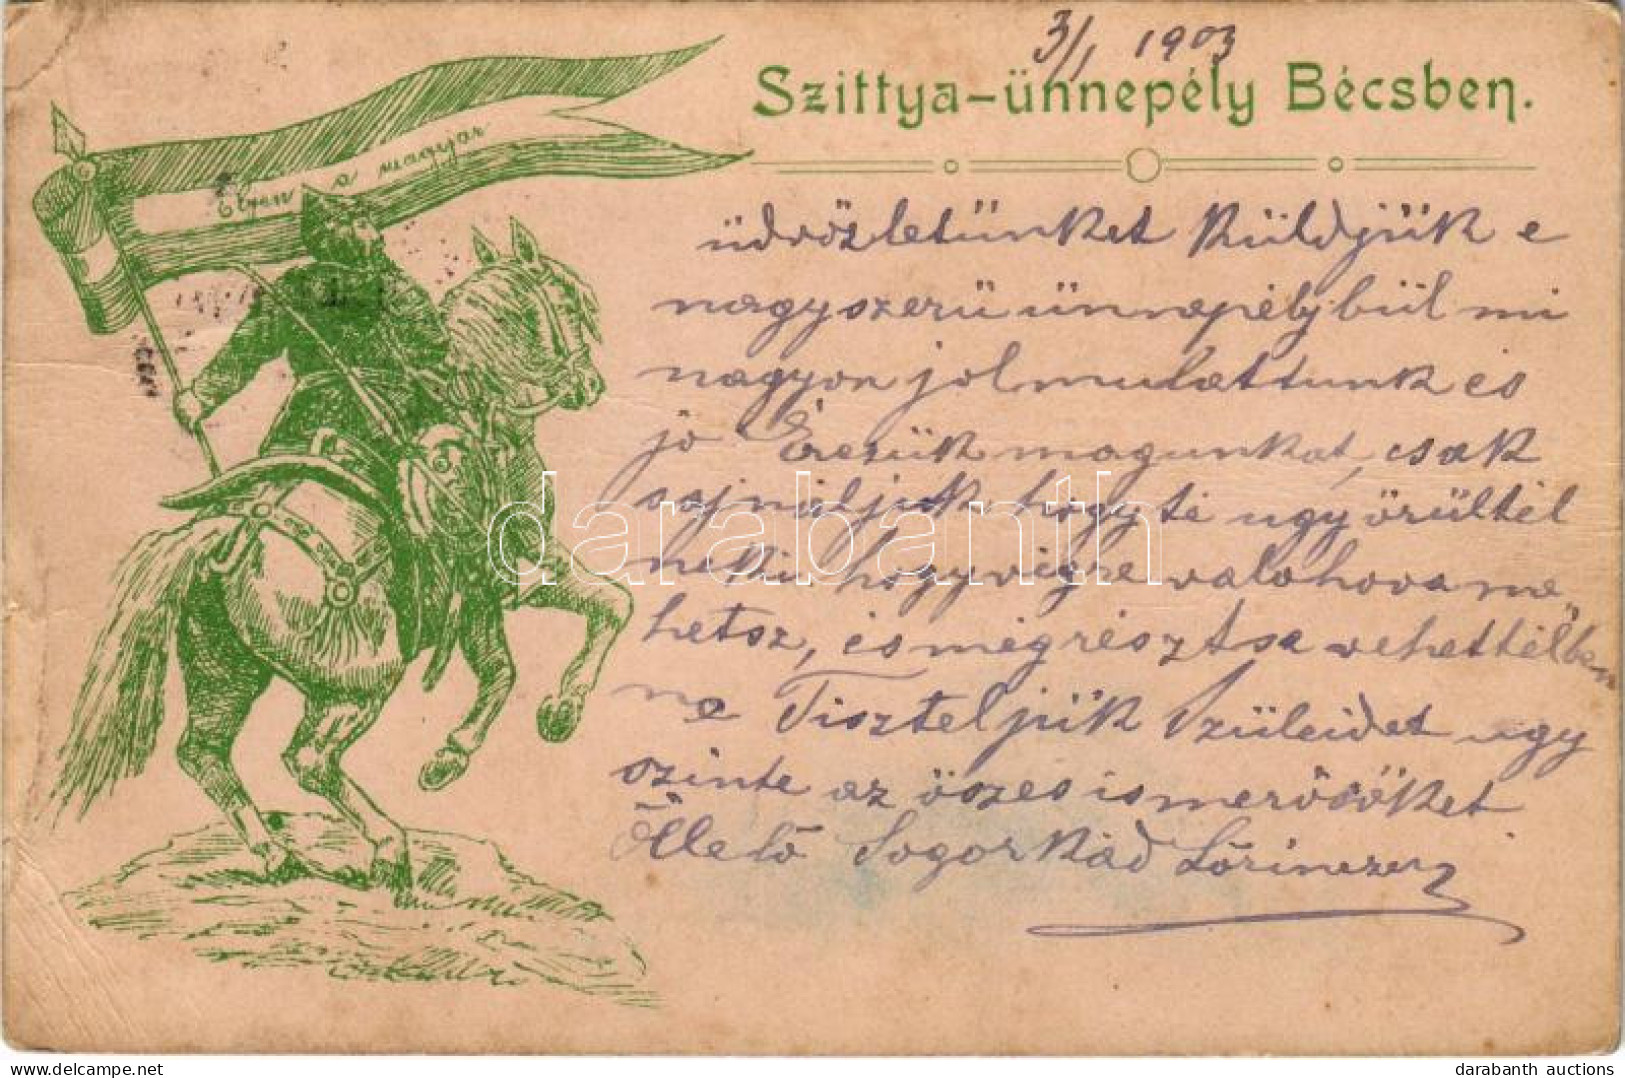 3/1 1903
Szittya-ünnepély Bécsben.
Éljen a magyar
üdvözletünket Küldjük e
nagyszerü ünnepélybül mi
nagyon jol mulattunk és
jo Érezük magunkat, csak
sajnáljuk hogy te ugy örültél
neki hogy végre valahova me„
hetsz, és mégrészt se vehettél ben
ne Tiszteljük Szüleidet ugy
szinte az öszes ismerösöket
Ölelö Sogorkád Lörinczer
darabanth
darabanth auctions